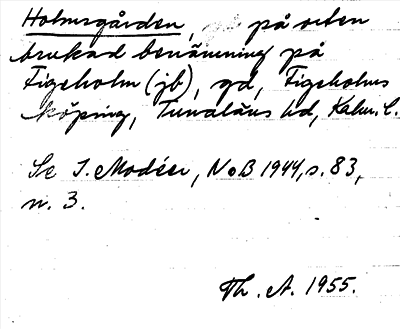 Holmsgården, på orten
brukad benämning på
Figeholm (jb), gd, Figeholms
köping, Tunaläns hd, Kalm. l.
Se I. Modéer, NoB 1944, s. 83,
n. 3.
Th. A. 1955.